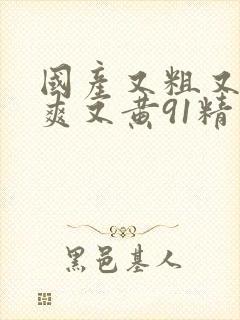 國產又粗又
爽又黄91精
黑邑基人